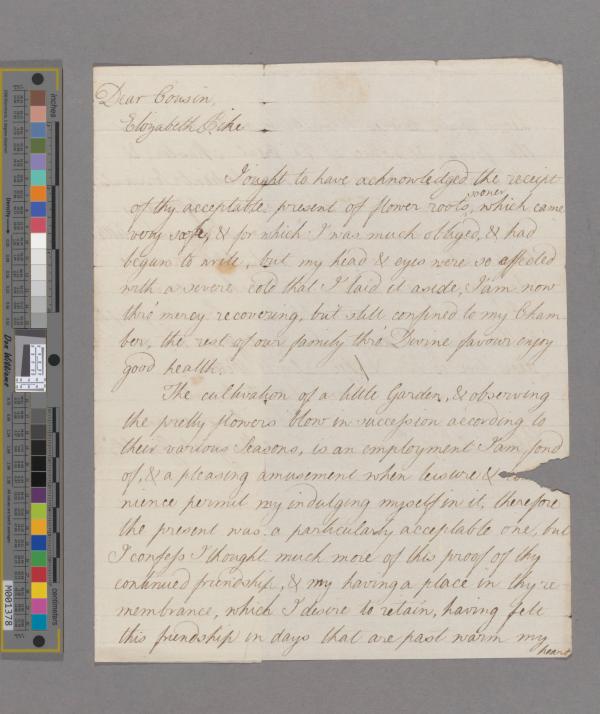 Dear Cousin,
Elizabeth Pike
I ought to have acknowledged the receipt
sooner
of thy acceptable present of flower roots, which came
very safe, & for which I was much obliged, & had
begun to write, but my head & eyes were so affected
with a severe cold that I laid it aside, I am now
thro' mercy recovering, but still confined to my Cham
ber, the rest of our family thro' Divine favour enjoy
good health.
The cultivation of a little Garden, & observing
the pretty flowers blow in succession according to
their various Seasons, is an employment I am fond
of, & a pleasing amusement when leisure &
nience permit my indulging myself in it, therefore
the present was a particularly acceptable one, but
I confess I thought much more of this proof of thy
continued friendship, & my having a place in thy re
membrance, which I desire to retain, having felt
this friendship in days that are past warm my
heart
inches
centimeters
Density
Don Williams
M001378